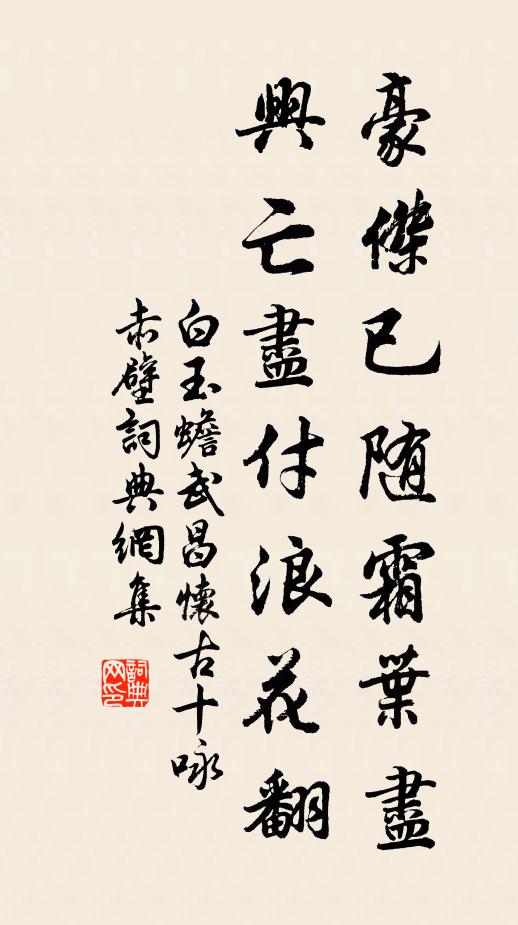 豪傑已随霜葉盡
興亡盡付浪花翻
白玉蟾武昌懷古十咏
赤壁詞典網集
詞典網印